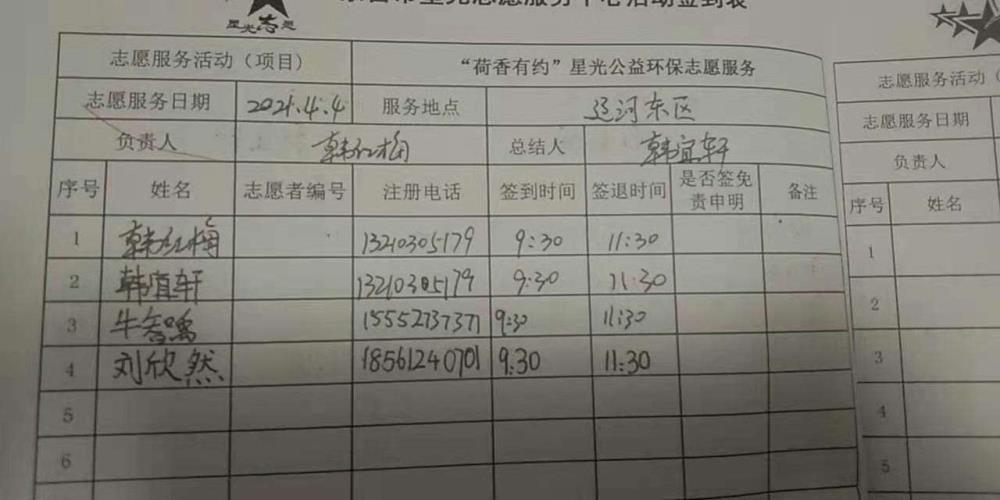 星光志愿服务中心活动签到表
星光志愿
志愿服务活动（项目） “荷香有约”星光公益环保志愿服务
志愿服务日期 2021.4.4 服务地点 辽河东区
负责人 韩红梅 总结人 韩宜轩
序号 姓名 志愿者编号 注册电话 签到时间 签退时间 是否签免责申明 备注
1 韩红梅 13210305179 9:30 11:30
2 韩宜轩 13210305179 9:30 11:30
3 牛智 15552737371 9:30 11:30
4 刘欣然 18561240701 9:30 11:30
5
6
志愿服务活动（
志愿服务日期
负责人
序号 姓名
1
2
3
4
5